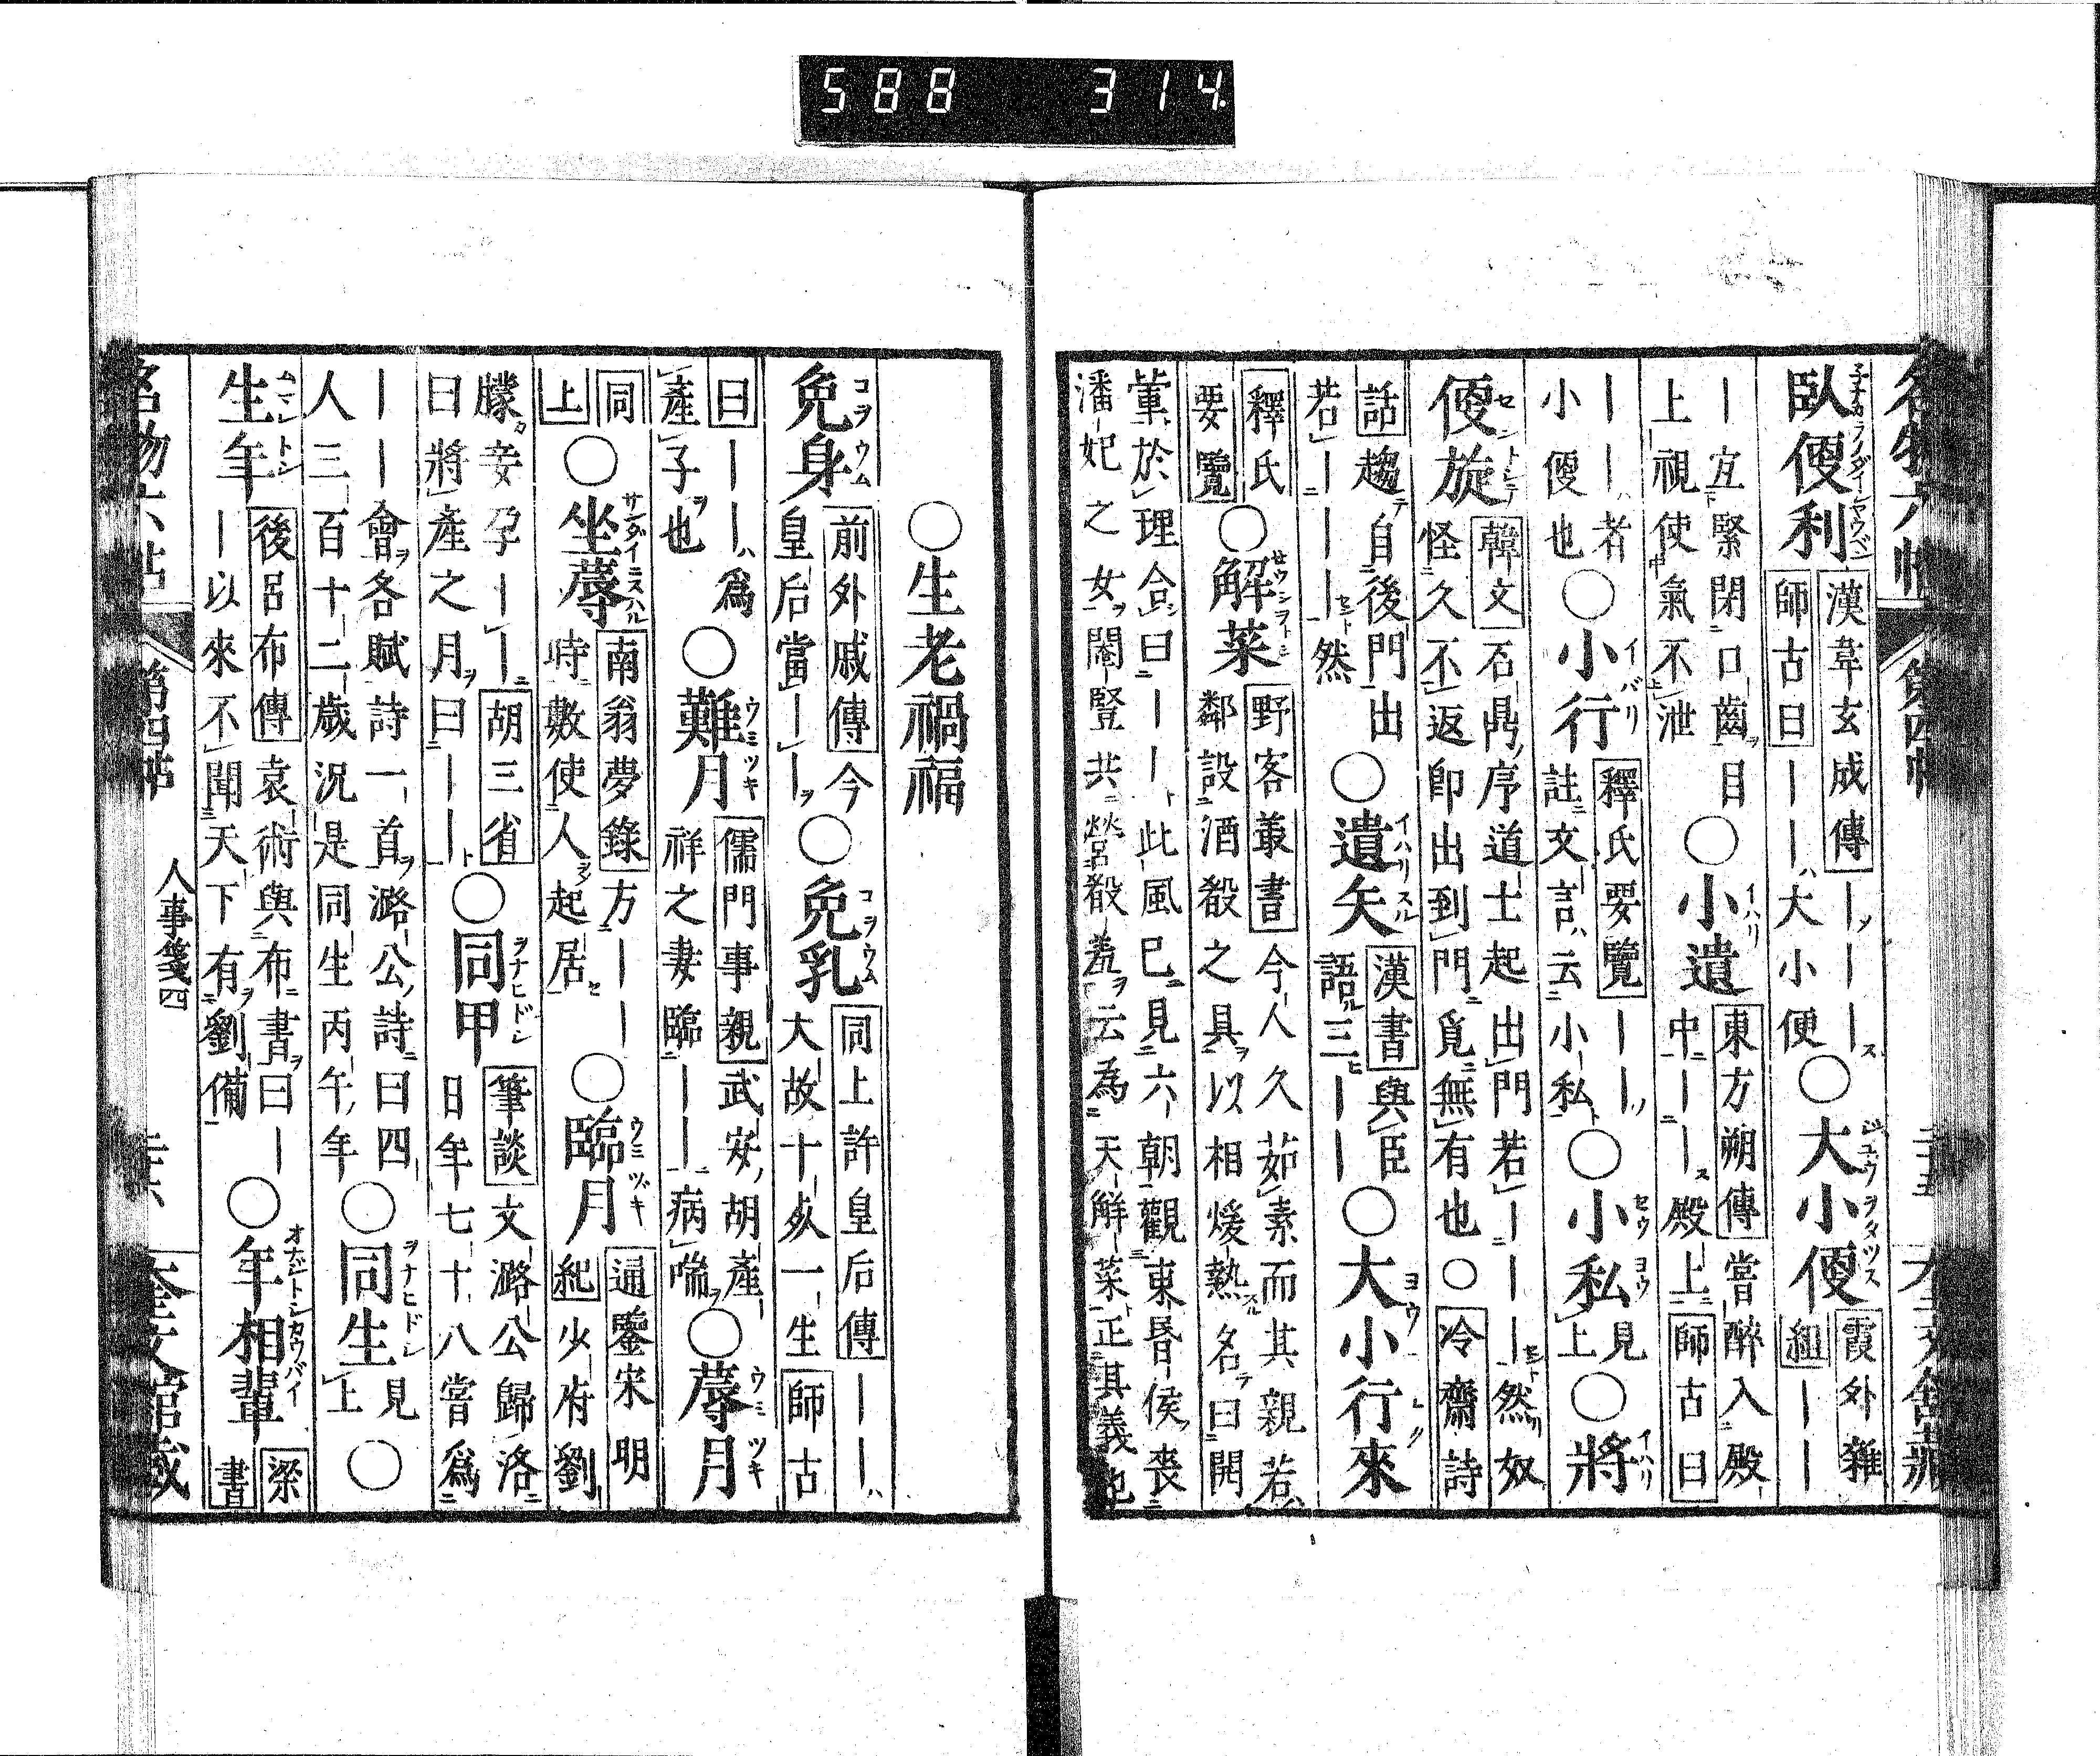 588 314.
臥便利 漢韋玄成傳 ｜｜｜ 師古曰 ｜｜大小便 ○大小便 霞外雜俎 ｜｜
｜宜緊閉口齒目上視使氣不泄 ○小遺 東方朔傳 嘗醉入殿中｜｜殿上 師古曰
｜｜者小便也 ○小行 釋氏要覽 ｜｜註文言云小私 ○小私 見上 ○將
便旋 韓文 石鼎序道士起出門若｜｜｜然奴怪久不返卽出到門覓無有也 ○冷齋詩
話 趨自後門出若｜｜｜然 ○遺矢 漢書 與臣語三｜｜ ○大小行來
釋氏要覽 ○解菜 野客叢書 今人久茹素而其親若鄰設酒殽之具以相煖熱名曰開
葷於理合曰｜｜此風已見六朝觀東昏侯喪潘妃之女閹豎共營殽羞云為天解菜正其義也
○生老禍福
免身 前外戚傳 今皇后當｜｜ ○免乳 同上許皇后傳 ｜｜大故十死一生 師古
曰 ｜｜為產子也 ○難月 儒門事親 武安胡產祥之妻臨｜｜病喘 ○蓐月
同上 ○坐蓐 南翁夢錄 方｜｜時數使人起居 ○臨月 通鑒宋明紀 少府劉
矇妾孕｜｜ 胡三省曰 將產之月曰｜｜ ○同甲 筆談 文潞公歸洛日年七十八嘗爲
｜｜會各賦詩一首潞公詩曰四人三百十二歲況是同生丙午年 ○同生 見上 ○
生年 後呂布傳 袁術與布書曰｜｜以來不聞天下有劉備 ○年相輩 梁書
名物六帖 第四帖 人事箋四 二十六 奎文館藏